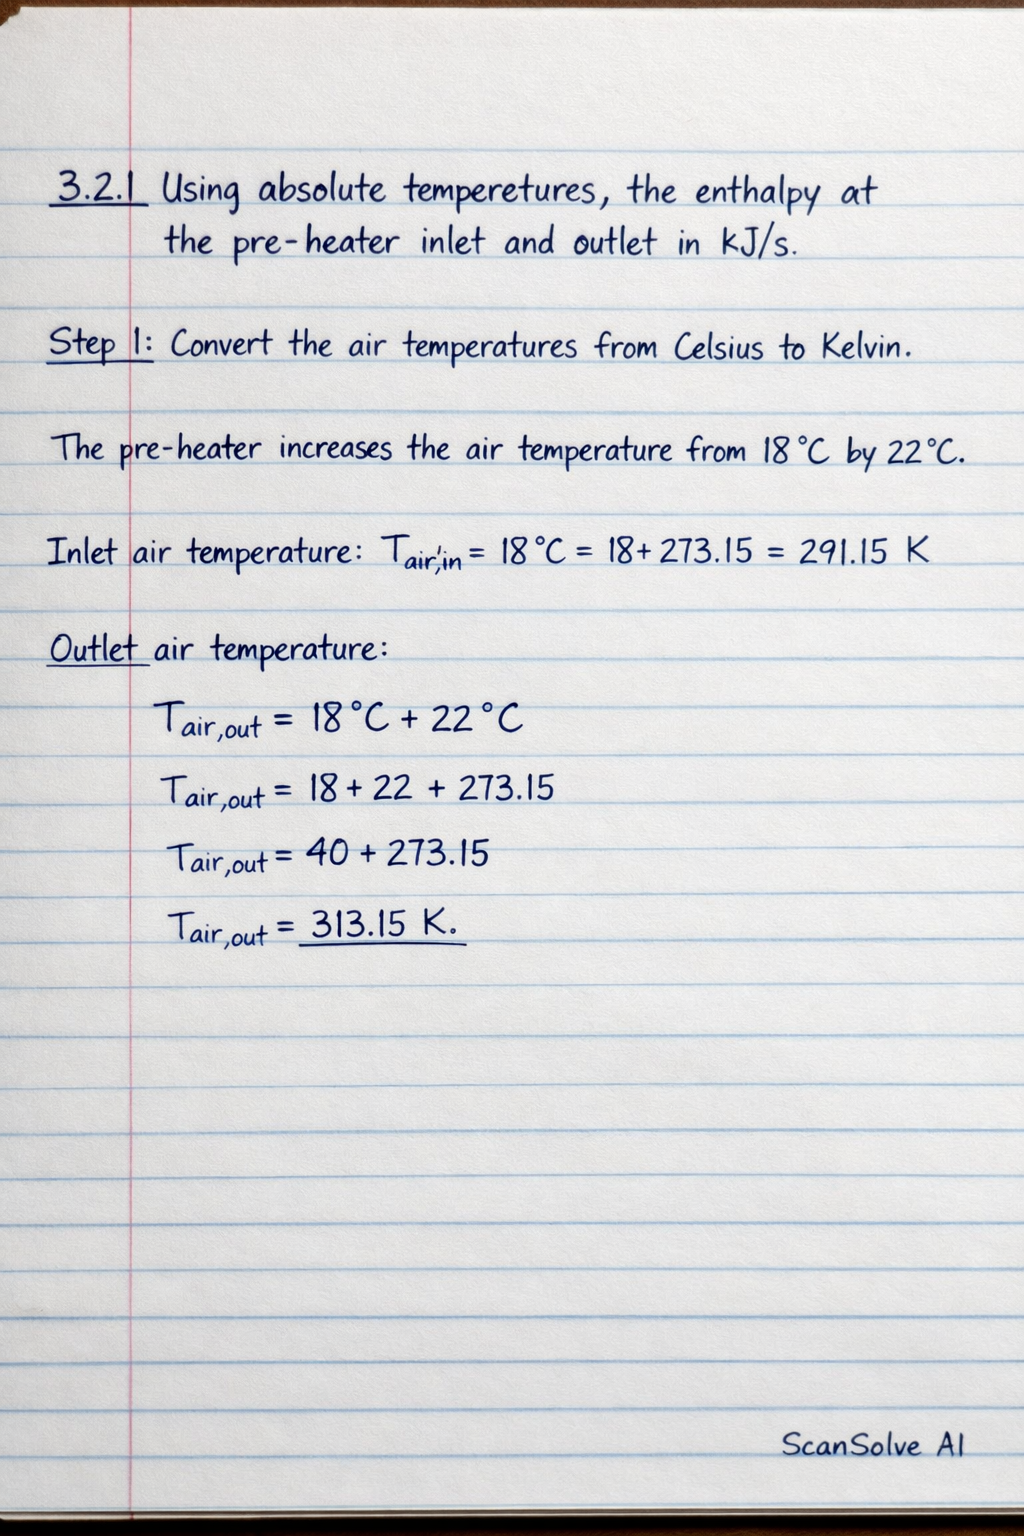 3.2.1 Using absolute temperetures, the enthalpy at
the pre-heater inlet and outlet in kJ/s.
Step 1: Convert the air temperatures from Celsius to Kelvin.
The pre-heater increases the air temperature from 18°C by 22°C.
Inlet air temperature: Tair,in = 18°C = 18+273.15 = 291.15 K
Outlet air temperature:
Tair,out = 18°C + 22°C
Tair,out = 18 + 22 + 273.15
Tair,out = 40 + 273.15
Tair,out = 313.15 K.
ScanSolve AI